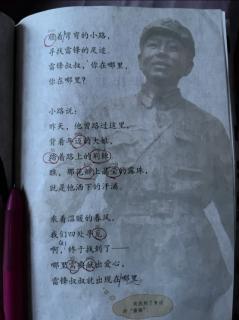 顺着弯弯的小路，
寻找雷锋的足迹，
雷锋叔叔，你在哪里，
你在哪里？
小路说：
昨天，他曾路过这里，
背着年迈的大娘，
踏着路上的荆棘。
瞧，那花瓣上晶莹的露珠，
就是他洒下的汗滴。
乘着温暖的春风，
我们四处寻觅。
啊，终于找到了——
哪里需要献出爱心，
雷锋叔叔就出现在哪里。